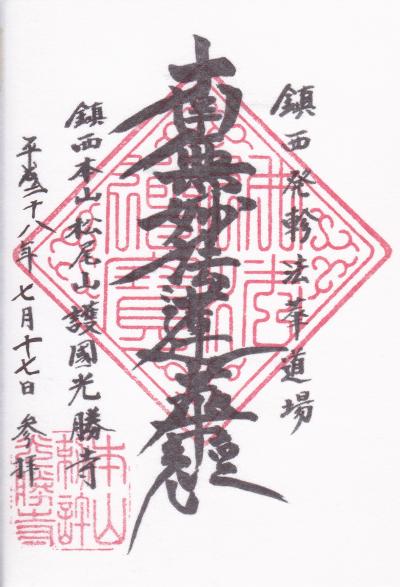 鎮西発軫法華道場
南無妙法蓮華経
鎮西本山松尾山護國光勝寺
平成二十八年七月十七日 参拝
本山
光勝寺